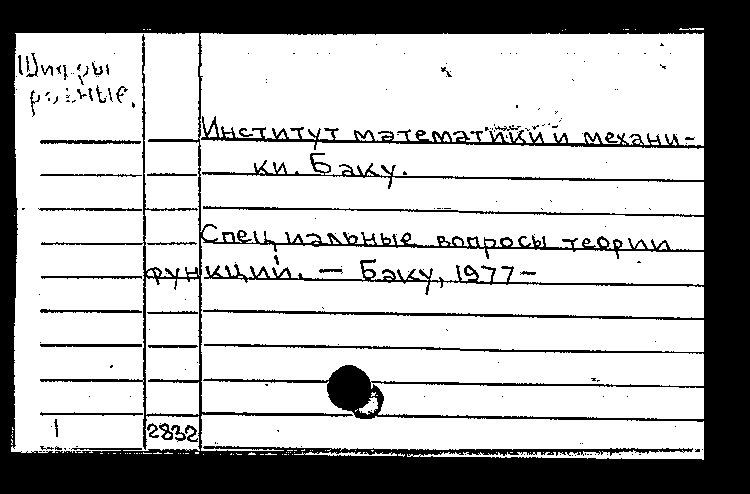 Шифры
разные.
Институт математики и механи-
ки. Баку.
Специальные вопросы теории
функций. — Баку, 1977—
1
2832